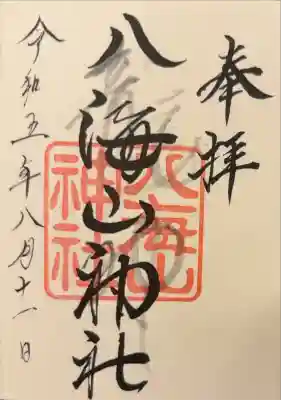 奉拝
八海山神社
八海山
神社
令和五年八月十一日